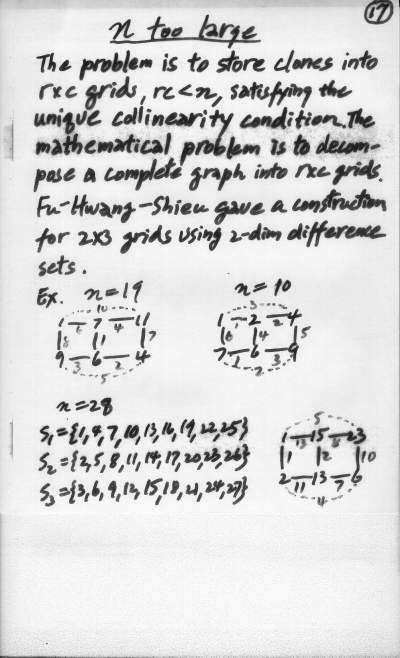 17
n too large
The problem is to store clones into
rxc grids, rc<n, satisfying the
unique collinearity condition. The
mathematical problem is to decom-
pose a complete graph into rxc grids.
Fu-Hwang-Shieu gave a construction
for 2x3 grids using 2-dim difference
sets.
Ex. n=19 n=10
10 3
1 7 11 1 2 4
6 4 1 2
8 1 7 6 4 5
9 6 4 7 6 9
3 2 1 3
5 2
n=28
S1={1,4,7,10,13,16,19,22,25}
S2={2,5,8,11,14,17,20,23,26}
S3={3,6,9,12,15,18,21,24,27}
5
1 15 23
13 8
1 2 10
2 13 6
11 7
4